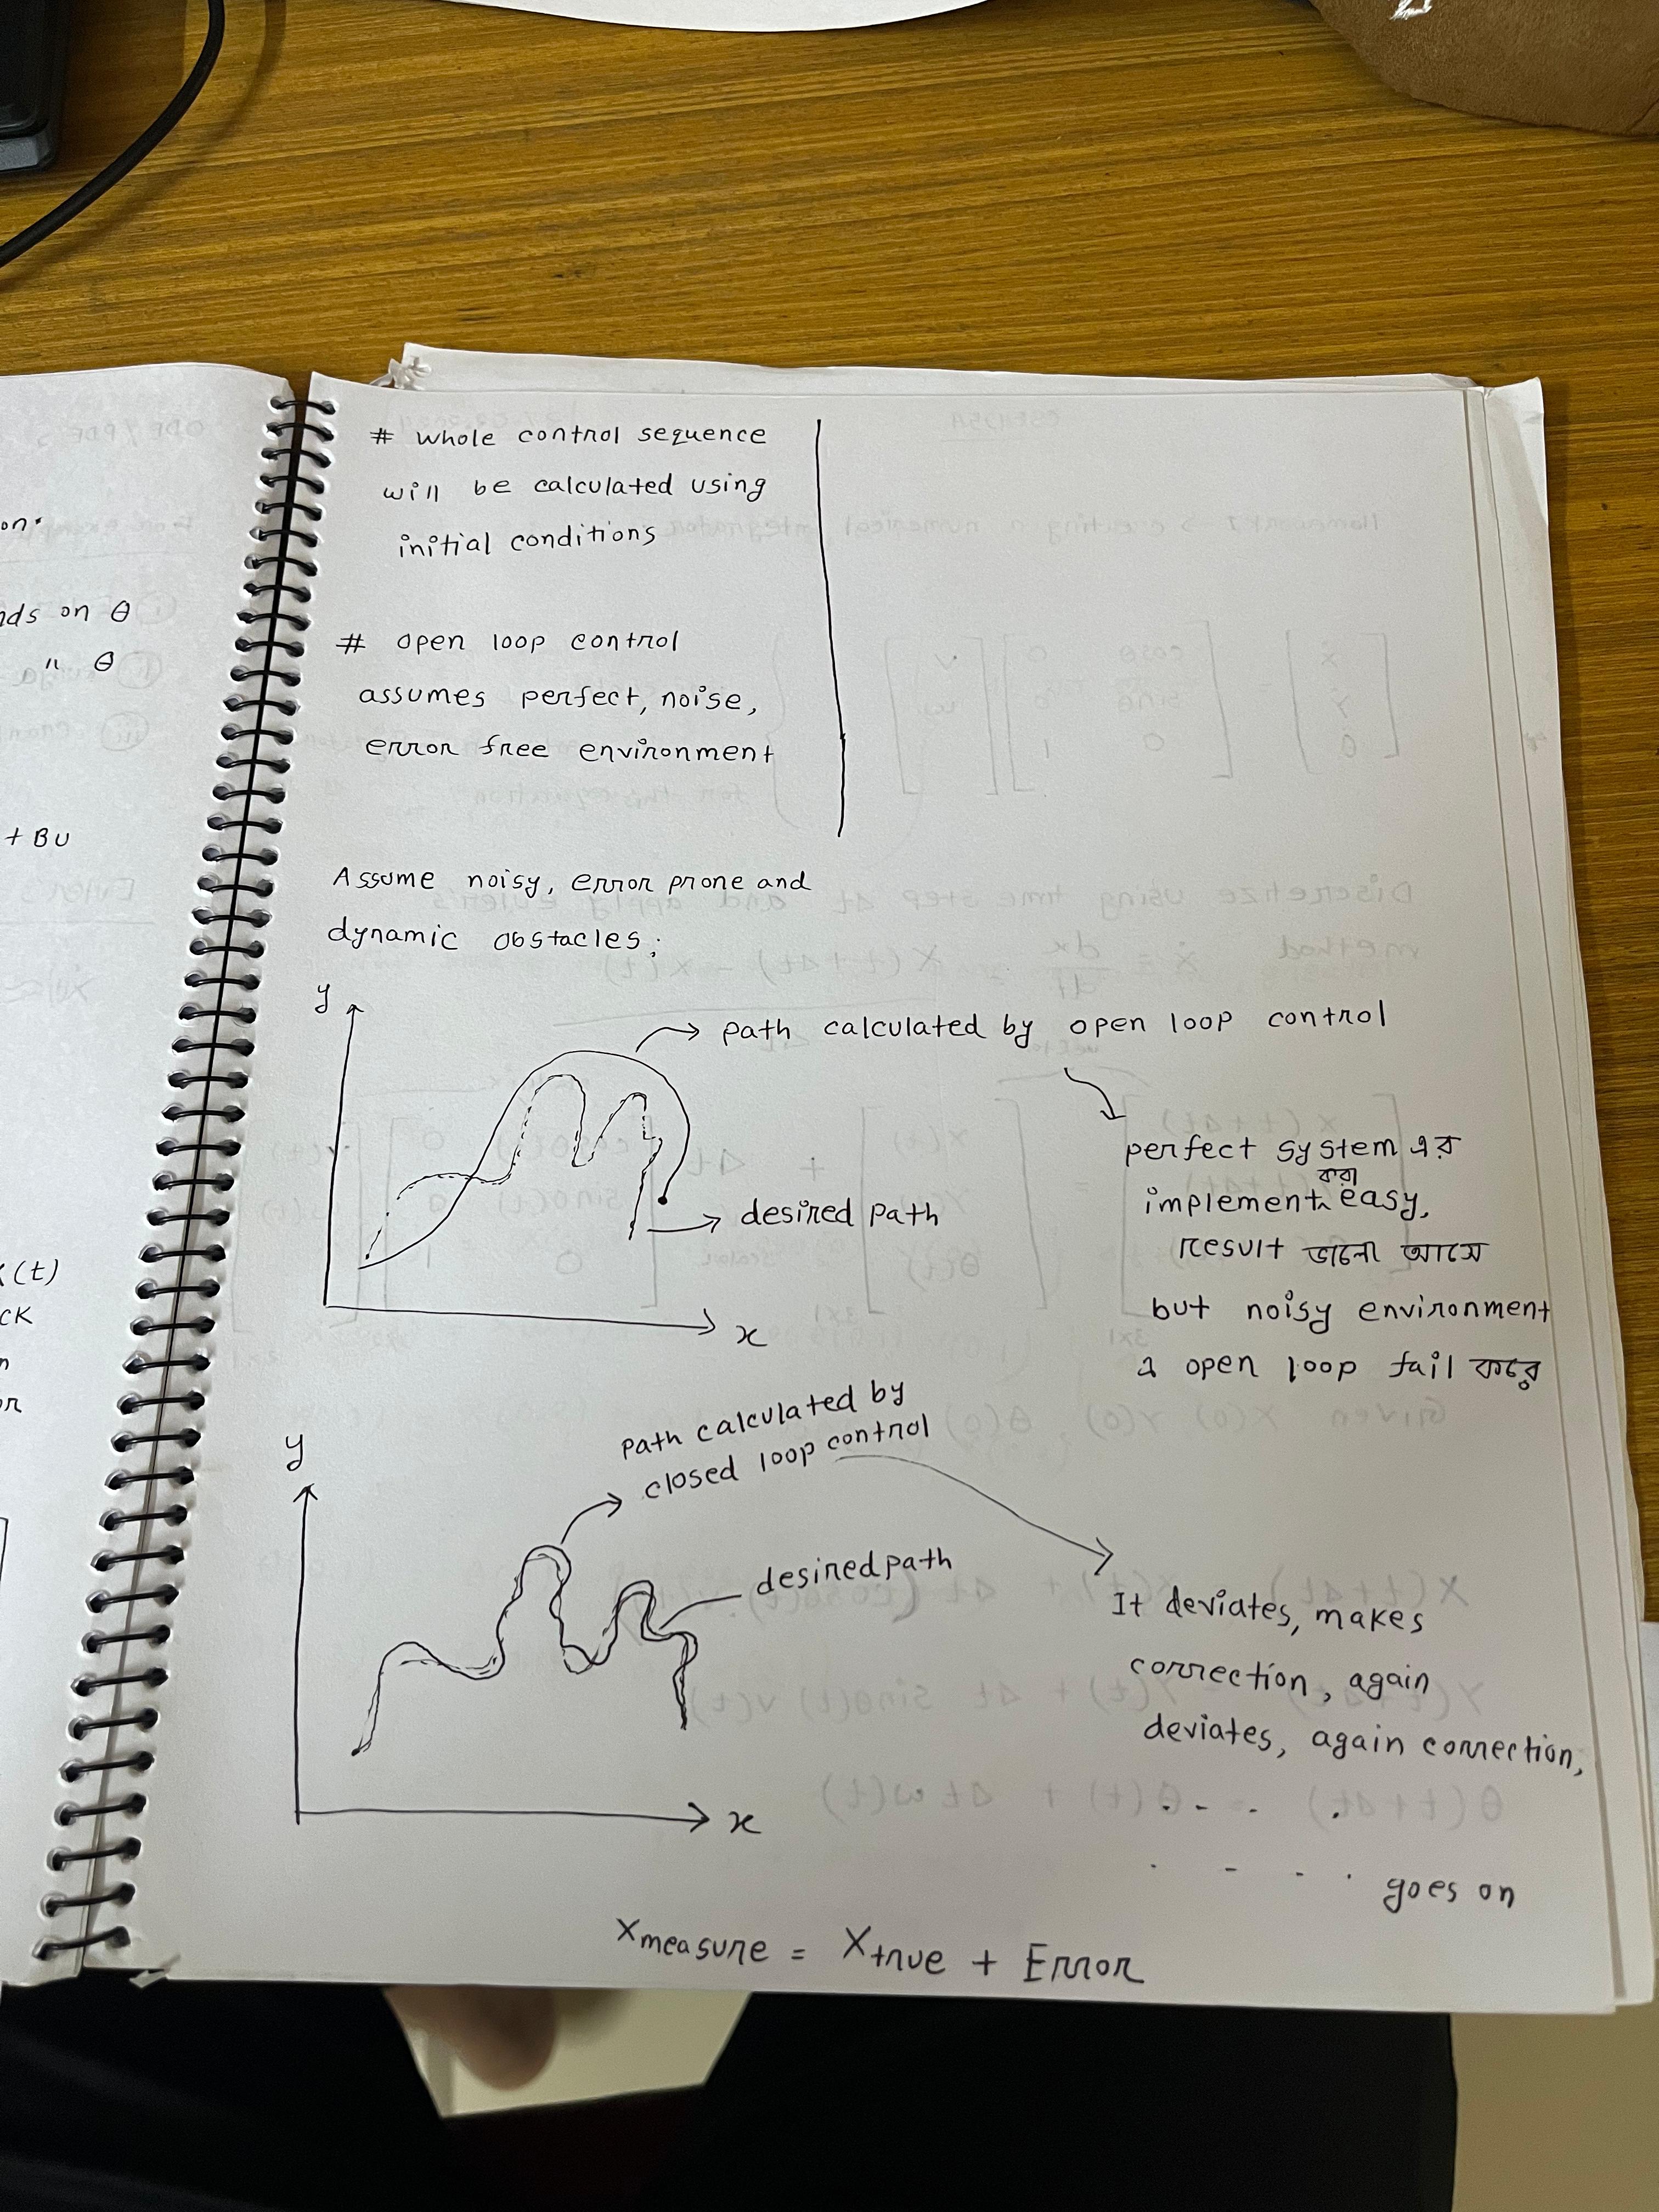 # whole control sequence
will be calculated using
initial conditions
# open loop control
assumes perfect, noise,
error free environment
Assume noisy, error prone and
dynamic obstacles:
y
path calculated by open loop control
desired path
x
perfect system এর
implement করা easy,
result ভালো আসে
but noisy environment
এ open loop fail করে
path calculated by
closed loop control
y
desired path
x
It deviates, makes
correction, again
deviates, again correction,
. - - .
. - - . goes on
Xmeasure = Xtrue + Error
on.
nds on θ
" θ
+ BU
(t)
CK
n
or